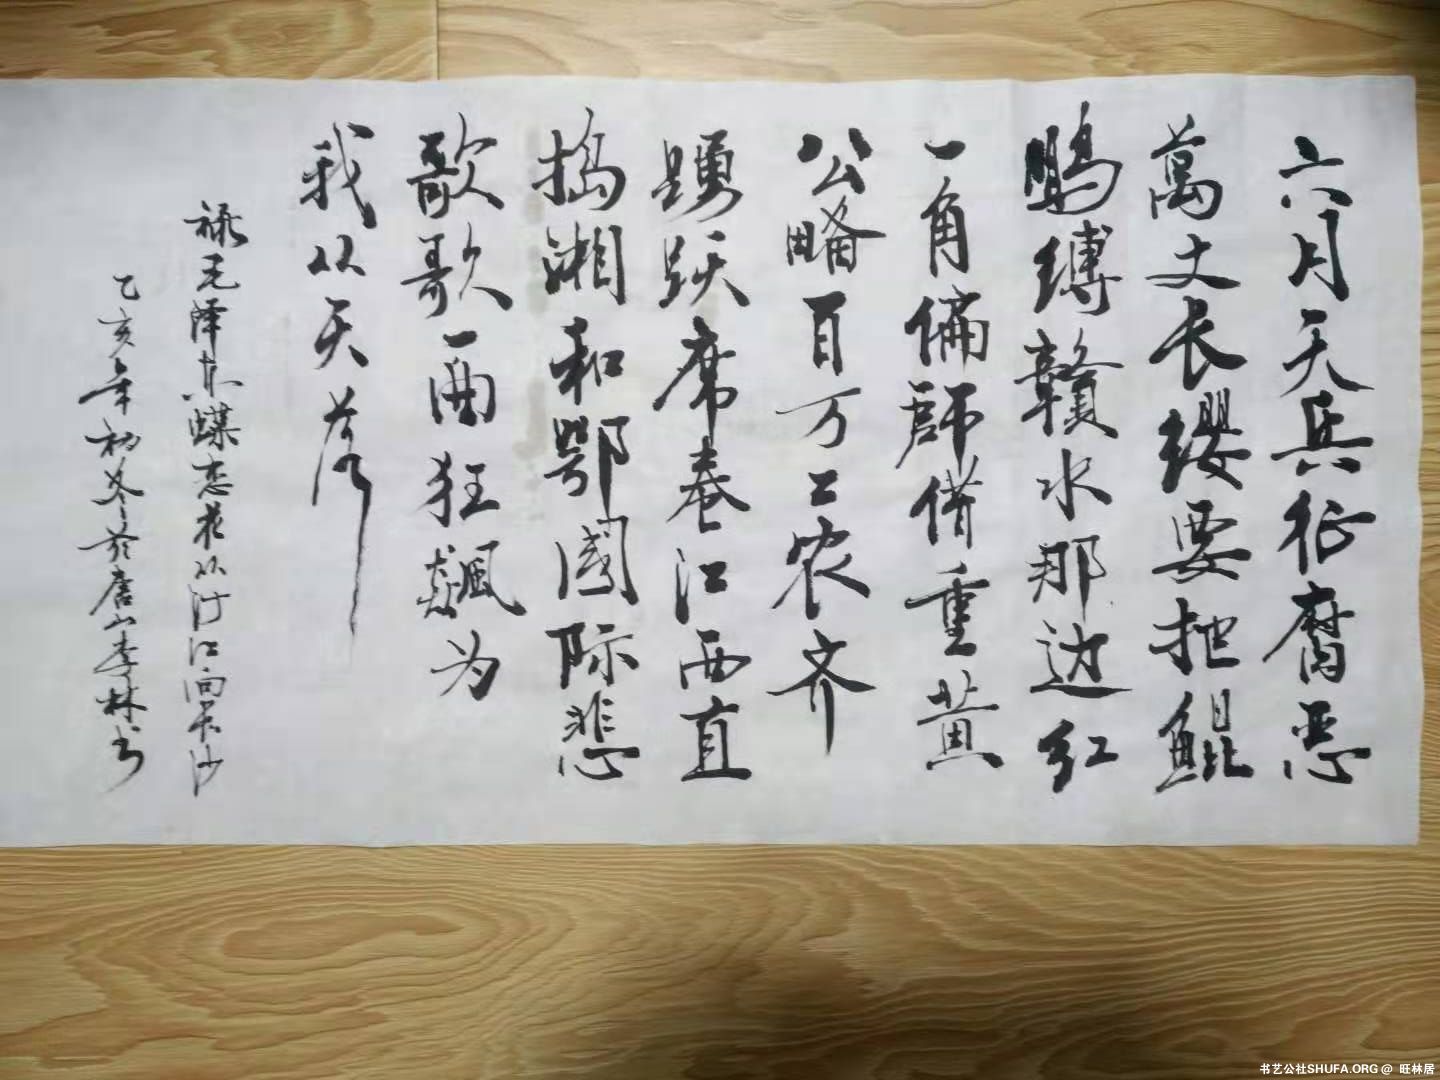 六月天兵征腐恶
萬丈长缨要把鲲
鹏缚赣水那边红
一角偏師借重黄
公略百万工农齐
踴跃席卷江西直
搗湘和鄂國际悲
歌歌一曲狂飙为
我从天落
录毛泽东蝶恋花从汀江向长沙
乙亥年初冬於唐山李林书
书艺公社SHUFA.ORG @ 旺林居